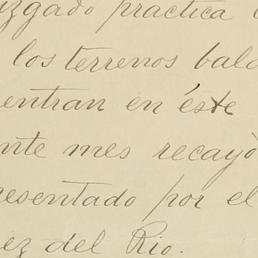 uzgado practica
los terrenos bald
entran en éste
ente mes recayó
presentado por el
ez del Rio.